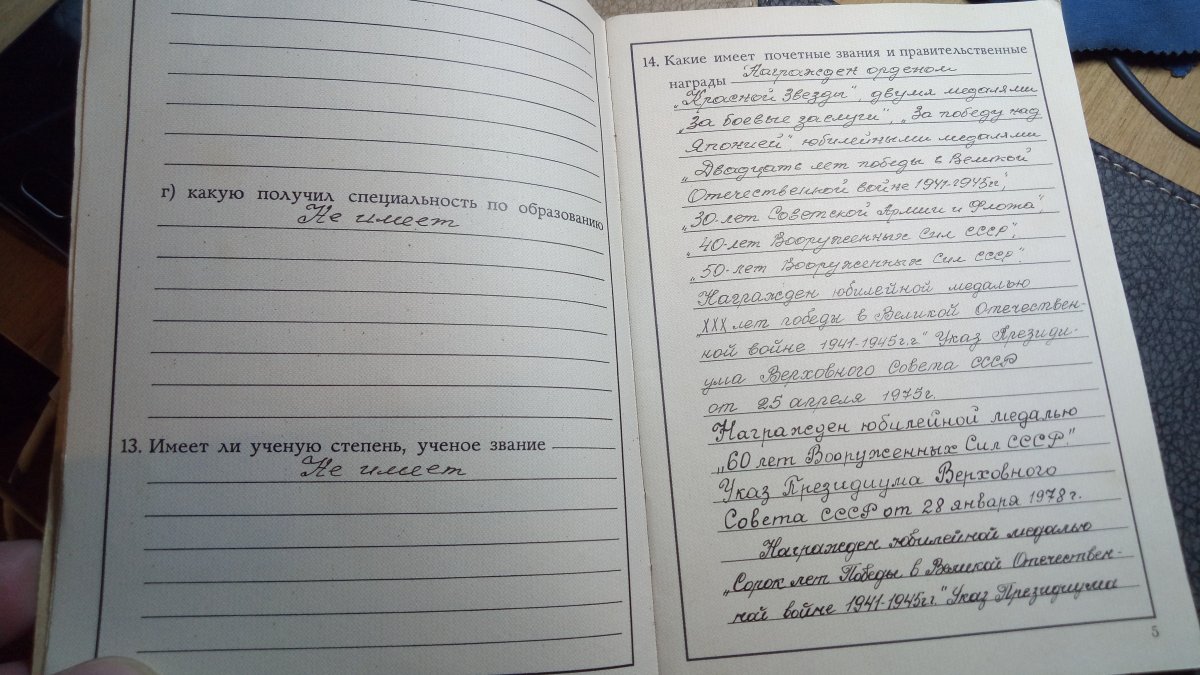 г) какую получил специальность по образованию
Не имеет
13. Имеет ли ученую степень, ученое звание
Не имеет
14. Какие имеет почетные звания и правительственные
награды Награжден орденом
„Красной Звезды", двумя медалями
„За боевые заслуги", „За победу над
Японией", юбилейными медалями
„Двадцать лет победы в Великой
Отечественной войне 1941-1945г.",
„30-лет Советской Армии и Флота",
„40-лет Вооруженных Сил СССР",
„50-лет Вооруженных Сил СССР".
Награжден юбилейной медалью
„XXX лет победы в Великой Отечествен-
ной войне 1941-1945г.г." Указ Президи-
ума Верховного Совета СССР
от 25 апреля 1975г.
Награжден юбилейной медалью
„60 лет Вооруженных Сил СССР."
Указ Президиума Верховного
Совета СССР от 28 января 1978г.
Награжден юбилейной медалью
„Сорок лет Победы в Великой Отечествен-
ной войне 1941-1945г.г." Указ Президиума
5